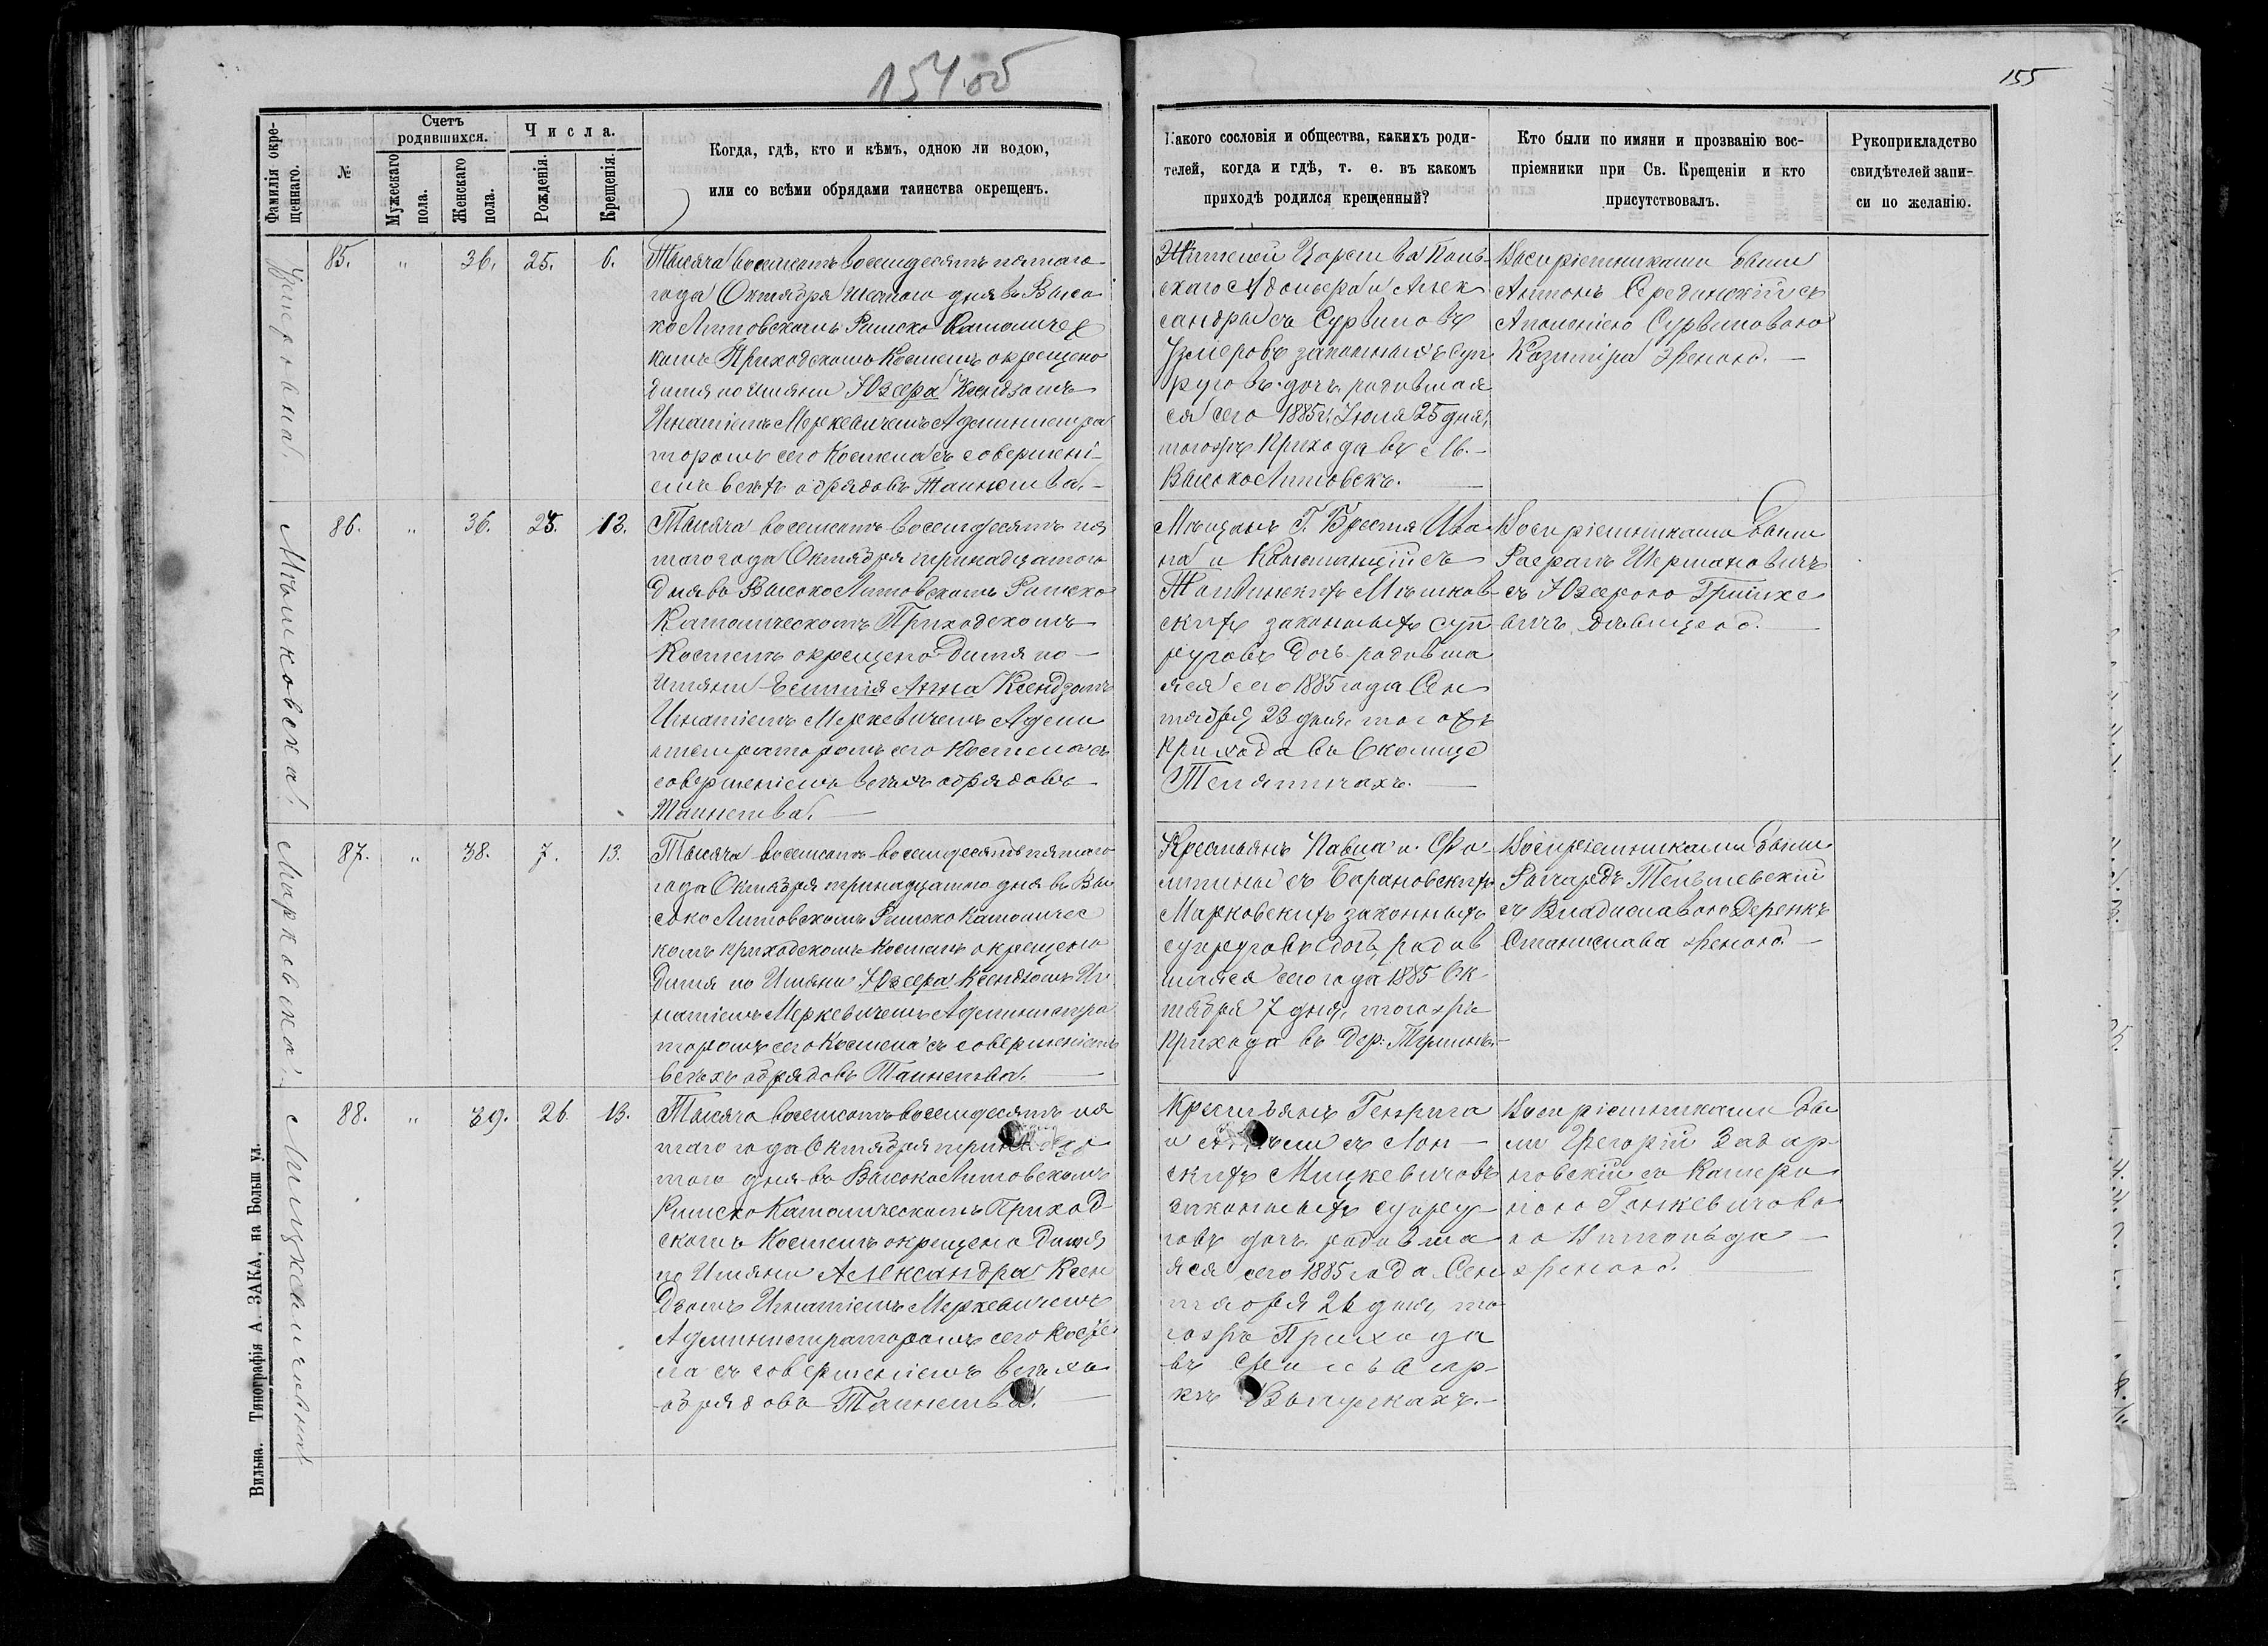 154 об
155
Фамилія окрещеннаго.
№
Счетъ родившихся.
Мужескаго пола.
Женскаго пола.
Числа.
Рожденія.
Крещенія.
Когда, гдѣ, кто и кѣмъ, одною ли водою,
или со всѣми обрядами таинства окрещенъ.
Какого сословія и общества, какихъ роди-
телей, когда и гдѣ, т. е. въ какомъ
приходѣ родился крещенный?
Кто были по имяни и прозванію вос-
пріемники при Св. Крещеніи и кто
присутствовалъ.
Рукоприкладство
свидѣтелей запи-
си по желанію.
85. " 36. 25. 6.
Тысяча восемсотъ восемдесятъ пятаго
года Октября шестого дня въ Высо
ко Литовскомъ Римско Католичес
комъ Приходскомъ Костелѣ окрещено
дитя по имяни Юзефа Ксендзомъ
Игнатіемъ Меркевичемъ Администра
торомъ сего Костела съ совершені-
емъ всѣхъ обрядовъ Таинства.
Жителей Царства Поль-
скаго Адольфа и Алек
сандры съ Сурвиловъ
законныхъ суп
руговъ дочь родившая
ся сего 1885 г. Іюля 25 дня,
тогожъ Прихода въ М.
Высоко Литовскъ.
Воспріемниками были
Антонъ Серединскій съ
Аполоніею Сурвиловою
Казиміра женою.
Мѣшковска.
86. " 36. 23. 13.
Тысяча восемсотъ восемдесятъ пя
таго года Октября тринадцатого
дня въ Высоко Литовскомъ Римско
Католическомъ Приходскомъ
Костелѣ окрещено дитя по
имяни Емилія Анна Ксендзомъ
Игнатіемъ Меркевичемъ Адми
нистраторомъ сего Костела съ
совершеніемъ всѣхъ обрядовъ
Таинства.
Мѣщанъ Г. Бреста Ива
на и Констанціи съ
Мѣшков
скихъ законныхъ суп
руговъ дочь родивша
яся сего 1885 года Сен
тября 23 дня, тогожъ
Прихода въ Околице
Телятичахъ.
Воспріемниками были
съ Юзефою
дѣвицею.
Марковска.
87. " 38. 7. 13.
Тысяча восемсотъ восемдесятъ пятаго
года Октября тринадцатого дня въ Вы
соко Литовскомъ Римско Католичес
комъ приходскомъ Костелѣ окрещено
дитя по Имяни Юзефа Ксендзомъ Иг
натіемъ Меркевичемъ Администра
торомъ сего Костела съ совершеніемъ
всѣхъ обрядовъ Таинства.
Крестьянъ Павла и Фе
лиціи съ Барановскихъ
Марковскихъ законныхъ
супруговъ дочь, родив
шаяся сего года 1885 Ок
тября 7 дня, тогожъ
Прихода въ дер.
Воспріемниками были
съ Владиславою
Станислава женою.
Мицкевичовна
88. " 39. 26. 13.
Тысяча восемсотъ восемдесятъ пя
таго года Октября тринадца
того дня въ Высоко Литовскомъ
Римско Католическомъ Приход
скомъ Костелѣ окрещено дитя
по Имяни Александра Ксен
дзомъ Игнатіемъ Меркевичемъ
Администраторомъ сего Косте
ла съ совершеніемъ всѣхъ
обрядовъ Таинства.
Крестьянъ Генрига
и съ Лон
скихъ Мицкевичовъ
законныхъ супру
говъ дочь родивша
яся сего 1885 года Сен
тября 26 дня, то
гожъ Прихода
въ
Воспріемниками бы
ли Грегорій
новскій съ
ною
ю Витольда
женою.
Вильна. Типографія А. ЗАКА, на Больш ул.